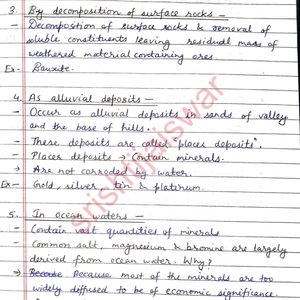 3. By decomposition of surface rocks -
- Decomposition of surface rocks & removal of
soluble constituents leaving residual mass of
weathered material containing ores.
Ex- Bauxite.
4. As alluvial deposits -
- Occur as alluvial deposits in sands of valley
and the base of hills.
- These deposits are called "places deposits".
- Placer deposits → Contain minerals.
→ Are not corroded by water.
Ex- Gold, silver, tin & platinum.
5. In ocean waters -
- Contain vast quantities of minerals
- Common salt, magnesium & bromine are largely
derived from ocean water. Why?
→ Because Because most of the minerals are too
widely diffused to be of economic signifirance.
srishtijaiswar